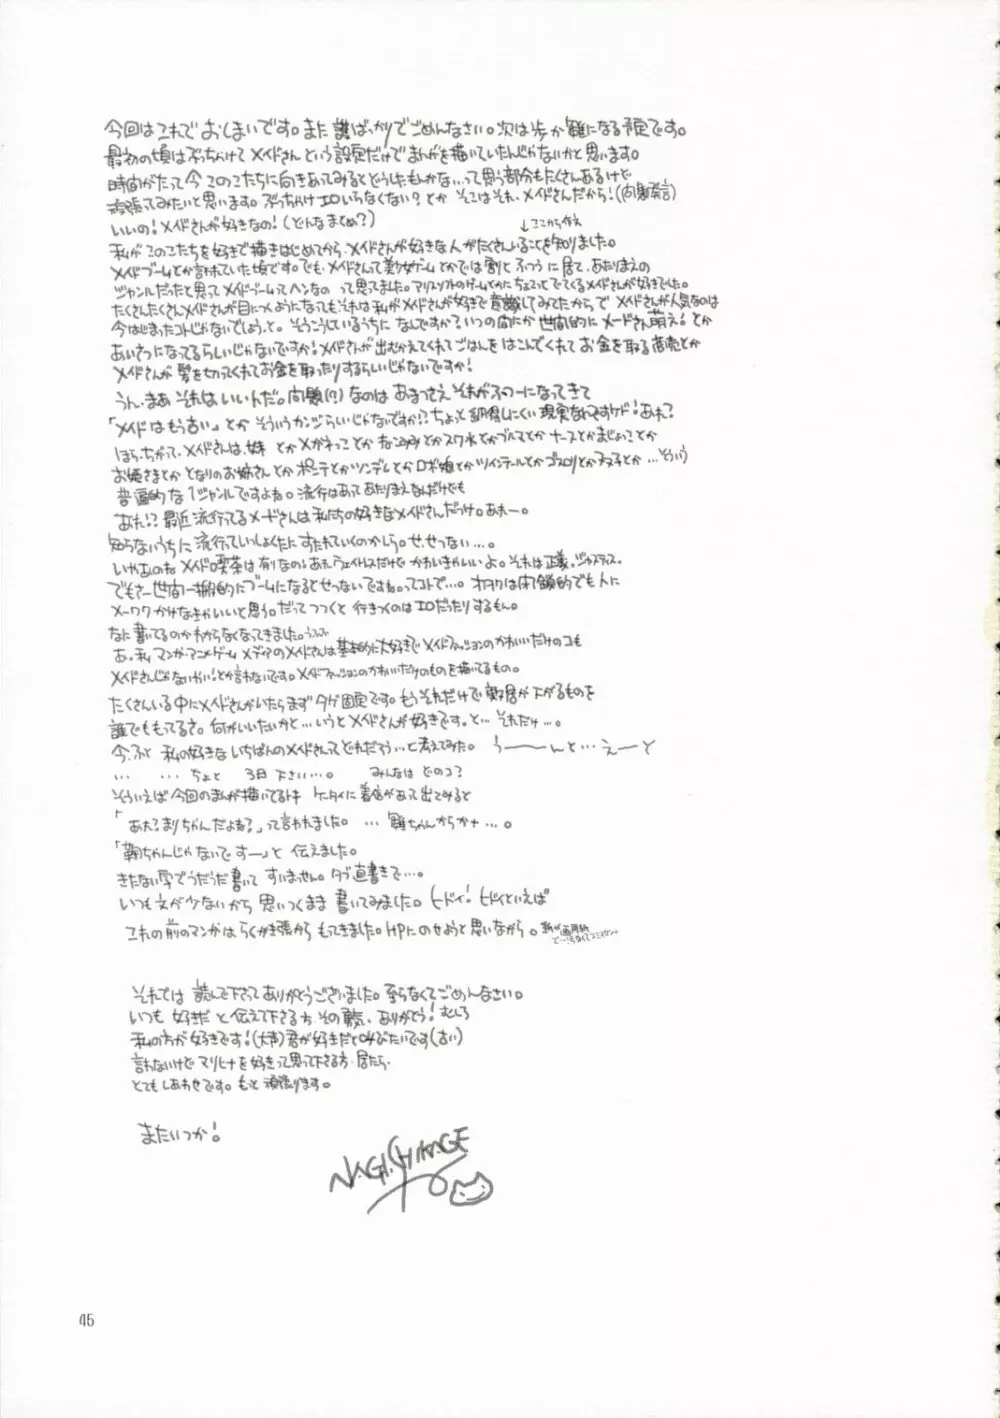 今回はこれでおしまいです。また誰ばっかりでごめんなさい。次は歩か雛になる予定です。
最初の頃はぶっちゃけてメイドさんという設定だけでまんがを描いていたんじゃないかと思います。
時間がたって今このこたちに向きあってみるとどうしたもんかな…って思う部分もたくさんあるけど
頑張ってみたいと思います。ぶっちゃけエロいらなくない?とか そこはそれ、メイドさんだから!(問題発言)
いいの!メイドさんが好きなの!(どんなまとめ?)
↓ここから作文
私がこのこたちを好きで描きはじめてから、メイドさんが好きな人がたくさんいることを知りました。
メイドブームとか言われていた頃です。でも、メイドさんて美少女ゲームとかでは割とふつうに居て、あたりまえの
ジャンルだったと思ってメイドブームってヘンなのって思ってました。アリスソフトのゲームとかにちょこっとでてくるメイドさんが好きでした。
たくさんたくさんメイドさんが目につくようになっても、それは私がメイドさんが好きで意識してみてたからで メイドさんが人気なのは
今はじまったコトじゃないでしょうと。そうこうしているうちに なんですか?いつの間にか世間的にメードさん萠え!とか
あいさつになってるらしいじゃないですか!メイドさんが出むかえてくれてごはんをはこんでくれてお金を取る商売とか
メイドさんが髪を切ってくれてお金を取ったりするらしいじゃないですか!
うん、まあ それはいいんだ。問題(?)なのは あまつさえ それがふつーになってきて
「メイドはもう古い」とか そういうカンジらしいじゃないですか!?ちょっと納得しにくい現実なんですケド!あれ?
ほら、ちがくて、メイドさんは、妹 とかメガネっことか ねこみみとかスク水とかブルマとか ナースとかまじょっことか
お姫さまとか となりのお姉さんとか ポニテとかツンデレとか ロボ娘とか ツインテールとか ゴスロリとか ふたごとか…そういう
普遍的な1ジャンルですよね。流行はあってあたりまえなんだけども
あれ!?最近流行ってるメードさんは私たちの好きなメイドさんだっけ。あれー。
知らないうちに流行っていっしょくたにすたれていくのかしら。せ、せつない…。
いやあのね メイド喫茶は有りなの!あれウェイトレスだけどかわいきゃいいよ。それは正義。ジャスティス。
でもさー世間一般的にブームになるとせつないですね。ってコトで…。オタクは閉鎖的でも人に
メーワクかけなきゃいいと思う。だってつっつくと行きつくのはエロだったりするもん。
なに書いてるのかわからなくなってきました。うふふ
あ。私 マンガ・アニメ・ゲーム メディアのメイドさんは基本的に大好きで メイドファッションのかわいいだけのコも
メイドさんじゃないやい!とか言わないです。メイドファッションのかわいいだけのものを描いてるもの。
たくさんいる中にメイドさんがいたらまず タゲ固定です。もう それだけで敷居が下がるものを
誰でももってるさ。何がいいたいかと…いうとメイドさんが好きです。と…それだけ…。
今、ふと 私の好きないちばんのメイドさんってどれだろう…と考えてみた。 うーーーんと…えーと
… … ちょと 3日下さい…。 みんなは どのコ?
そういえば今回のまんが描いてるトキ ケータイに着信があって出てみると
「あれ?まりちゃんだよね?」って言われました。… 雛ちゃんからか…。
「鞠ちゃんじゃないですー」と 伝えました。
きたない字でうだうだ書いて すいません。タブ直書きで…。
いつも文が少ないから 思いつくまま 書いてみました。ヒドイ!ヒドイといえば
これの前のマンガは らくがき張から もってきました。HPにのせようと思いながら。
それでは 読んで下さってありがとうございました。至らなくてごめんなさい。
いつも 好きだ と伝えて下さる方、その勇気、ありがとう!むしろ
私の方が好きです!(大声)君が好きだと叫びたいです(古い)
言わないけどマリヒナを好きって思って下さる方 居たら、
とても しあわせです。もっと 頑張ります。
またいつか!
NAGI.CHIKAGE
45